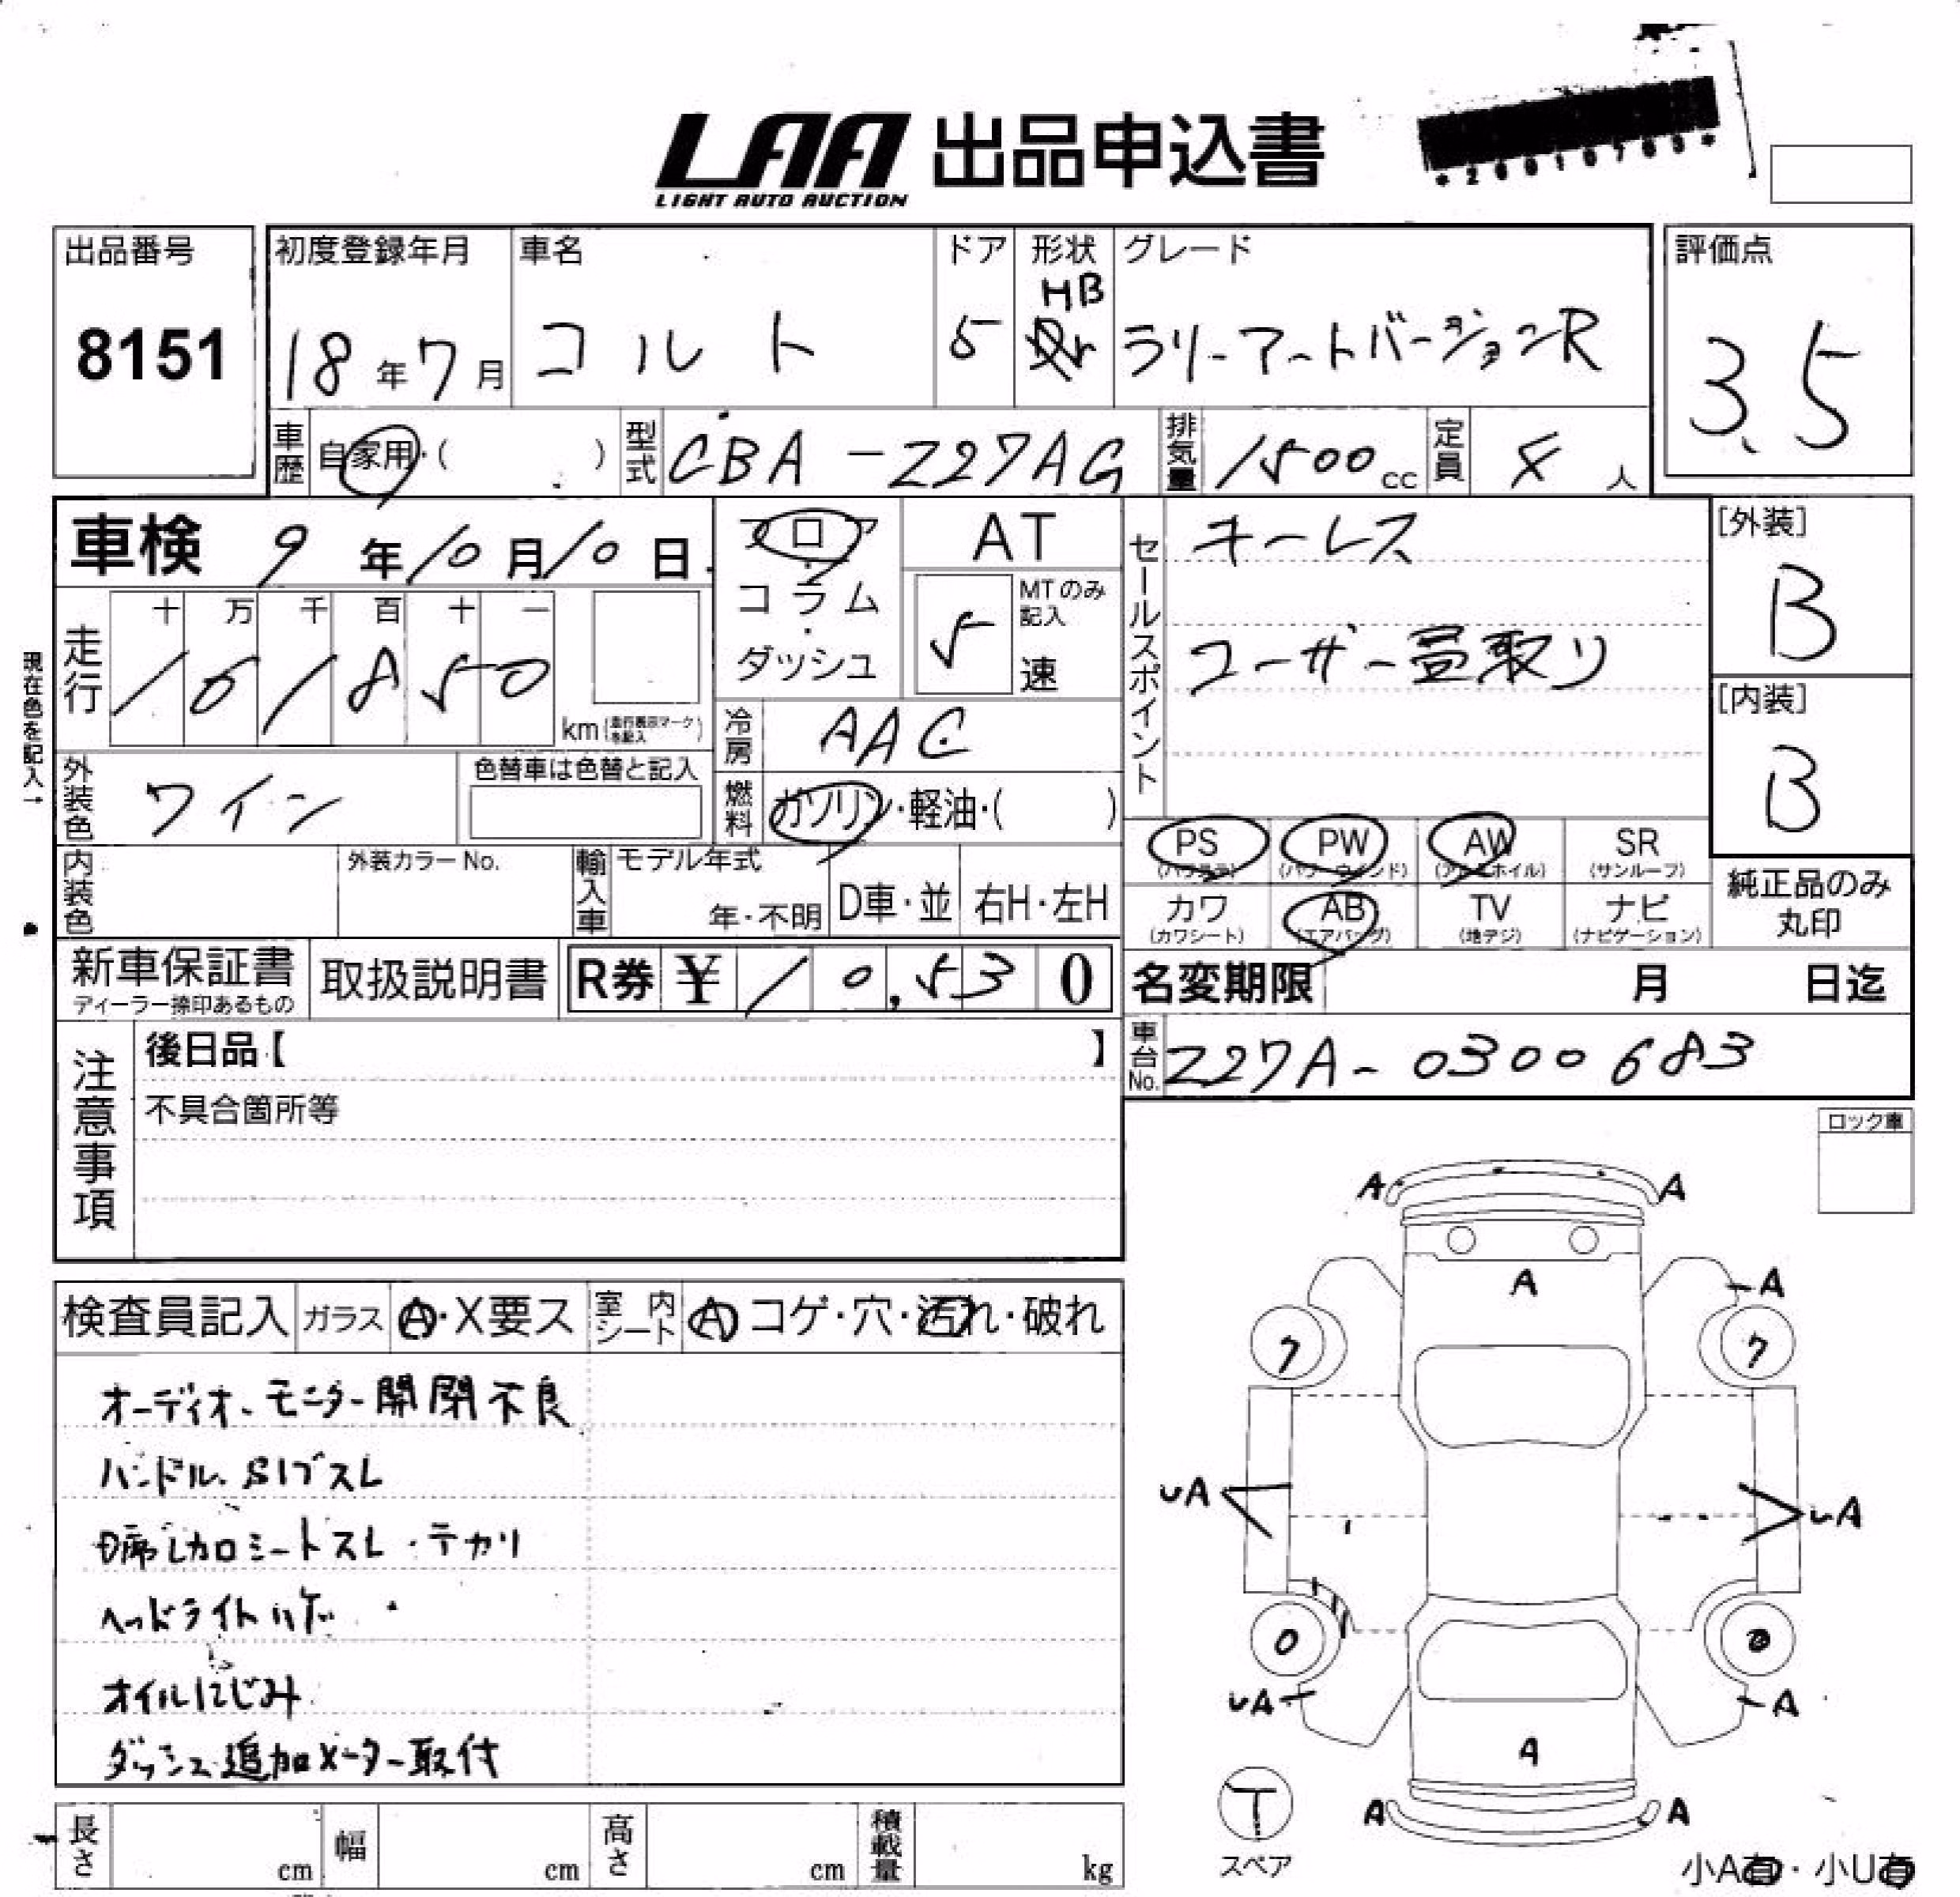 LAA 出品申込書
LIGHT AUTO AUCTION
出品番号
8151
初度登録年月
18年7月
車名
コルト
ドア
5
形状
HB
グレード
ラリーアートバージョンR
評価点
3.5
車歴
自家用・( )
型式
CBA-Z27AG
排気量
1500cc
定員
人
車検 9年10月10日
フロア
コラム
・
ダッシュ
AT
5
MTのみ記入
速
セールスポイント
キーレス
ユーザー買取り
[外装]
B
[内装]
B
現在色を記入→
走行
十 万 千 百 十 一
101850
km(走行表示マークを記入)
冷房
AAC
外装色
ワイン
色替車は色替と記入
燃料
ガソリン・軽油・( )
PS
(パワステ)
PW
(パワーウインド)
AW
(アルミホイル)
SR
(サンルーフ)
内装色
外装カラーNo.
輸入車
モデル年式
年・不明
D車・並
右H・左H
カワ
(カワシート)
AB
(エアバッグ)
TV
(地デジ)
ナビ
(ナビゲーション)
純正品のみ
丸印
新車保証書
ディーラー捺印あるもの
取扱説明書
R券 ¥10,530
名変期限 月 日迄
車台No.
Z27A-0300683
注意事項
後日品【 】
不具合箇所等
ロック車
検査員記入
ガラス
A・X要ス
室内シート
A コゲ・穴・汚れ・破れ
オーディオ、モニター開閉不良
ハンドル、SIブスレ
D席レカロシートスレ・テカリ
ヘッドライトハゲ
オイルにじみ
ダッシュ追加メーター取付
A A
A
A
7 7
UA UA
0
UA A
A
A A
T
スペア
小A有・小U有
長さ cm
幅 cm
高さ cm
積載量 kg